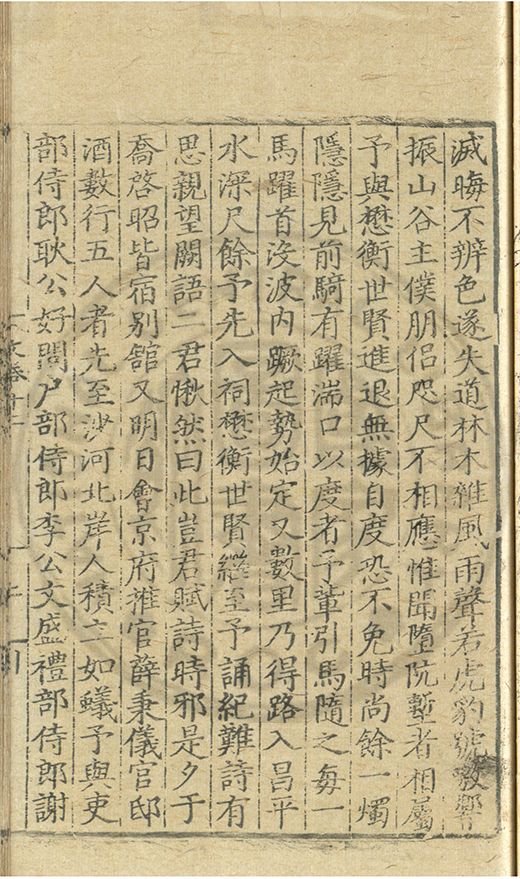 滅晦不辨色遂失道林木雜風雨聲若虎豹號噭響
振山谷主僕朋侣咫尺不相應惟聞墮阬塹者相屬
予與懋衡世賢進退無據自度恐不免時尚餘一燭
隱隱見前騎有躍湍口以度者予輩引馬隨之每一
馬躍首没波内蹶起勢始定又數里乃得路入昌平
水深尺餘予先入祠懋衡世賢繼至予誦紀難詩有
思親望闕語二君愀然曰此豈君賦詩時邪是夕于
喬啓昭皆宿别舘又明日會京府推官薛秉儀官邸
酒數行五人者先至沙河北岸人積立如蟻予與吏
部侍郎耿公好問户部侍郎李公文盛禮部侍郎謝
文卷十一